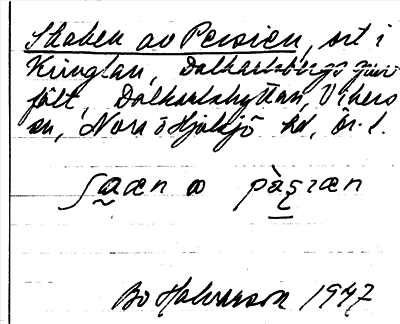 Shahen av Persien, ort i
Kringlan, Dalkarlsbergs gruv
fält, Dalkarlshyttan, Vikers
sn, Nora o Hjulsjö hd, Ör. l.
Bo Halvarson 1947